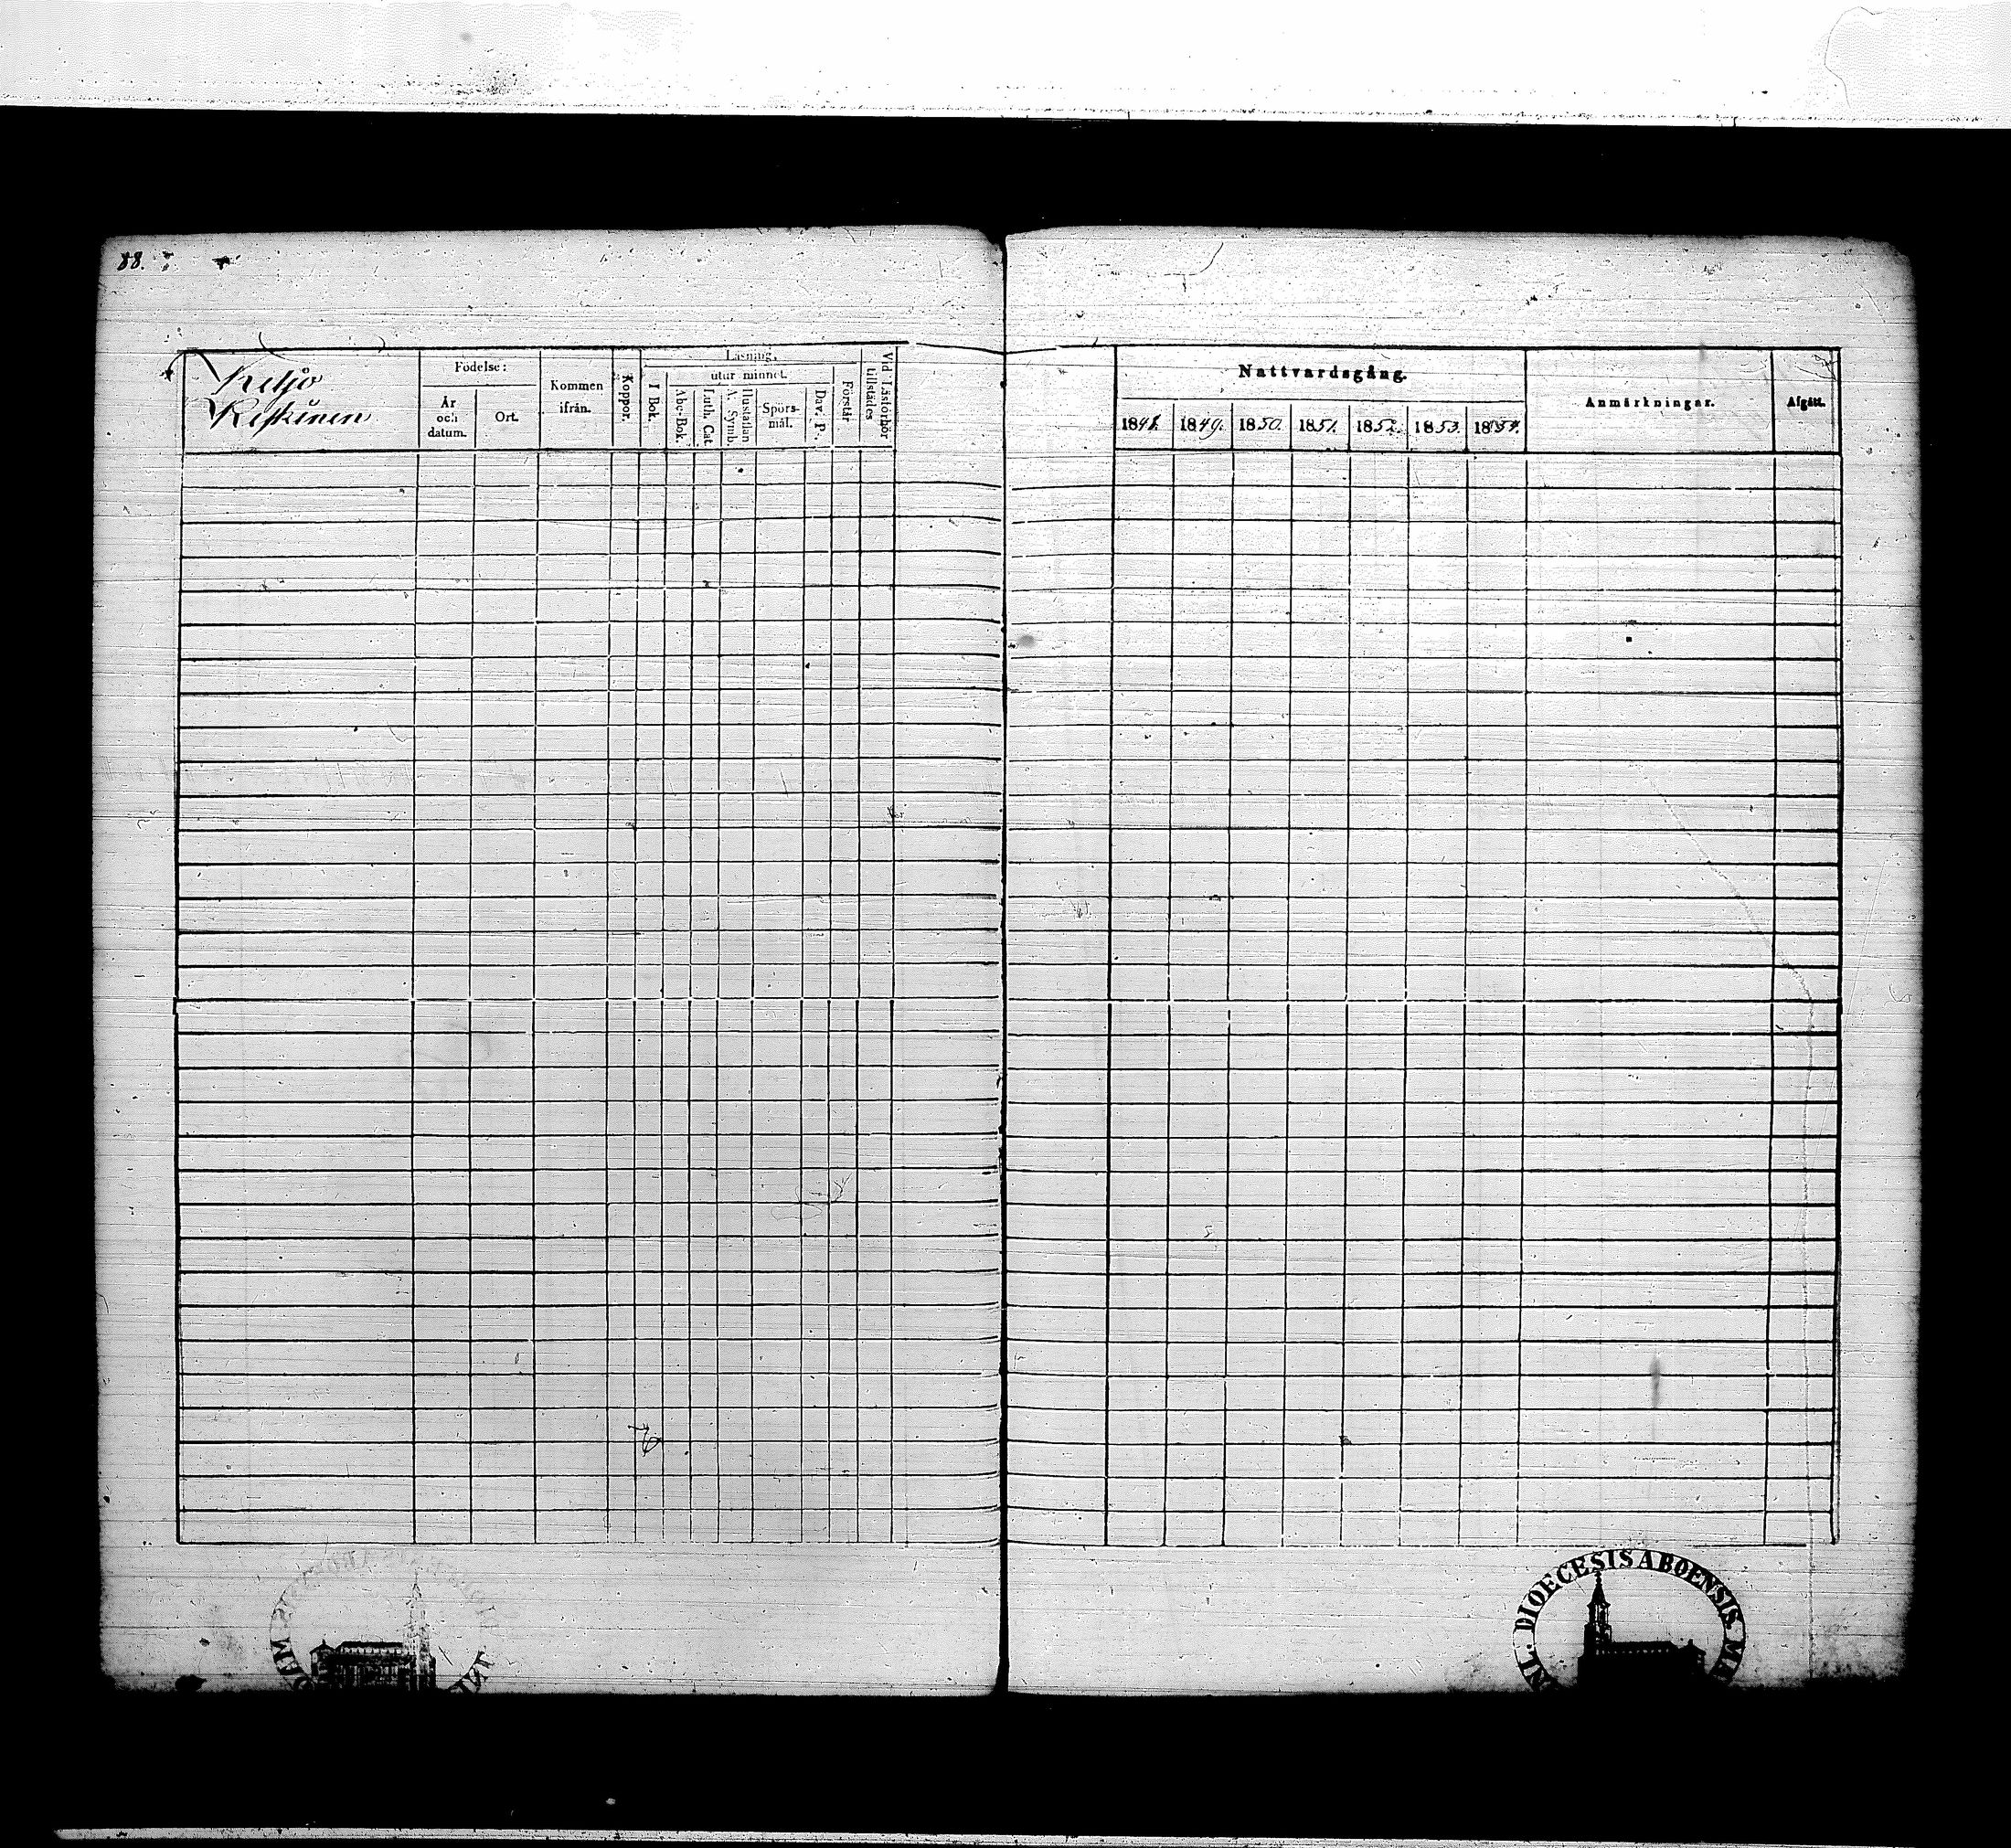 88.
Ketjo
Keskinen
Födelse:
År
och
datum.
Ort.
Kommen
ifrån.
Koppor.
Läsning,
utur minnet.
I Bok.
Abc-Bok.
Luth. Cat.
Hustaflan
A. Symb.
Spörs-
mål.
Dav. P.
Förstår
Vid Läsförhör
tillstädes
Nattvardsgång.
1848.
1849.
1850.
1851.
1852.
1853.
1854.
Anmärkningar.
Afgått.
DIOECESIS ABOENSIS